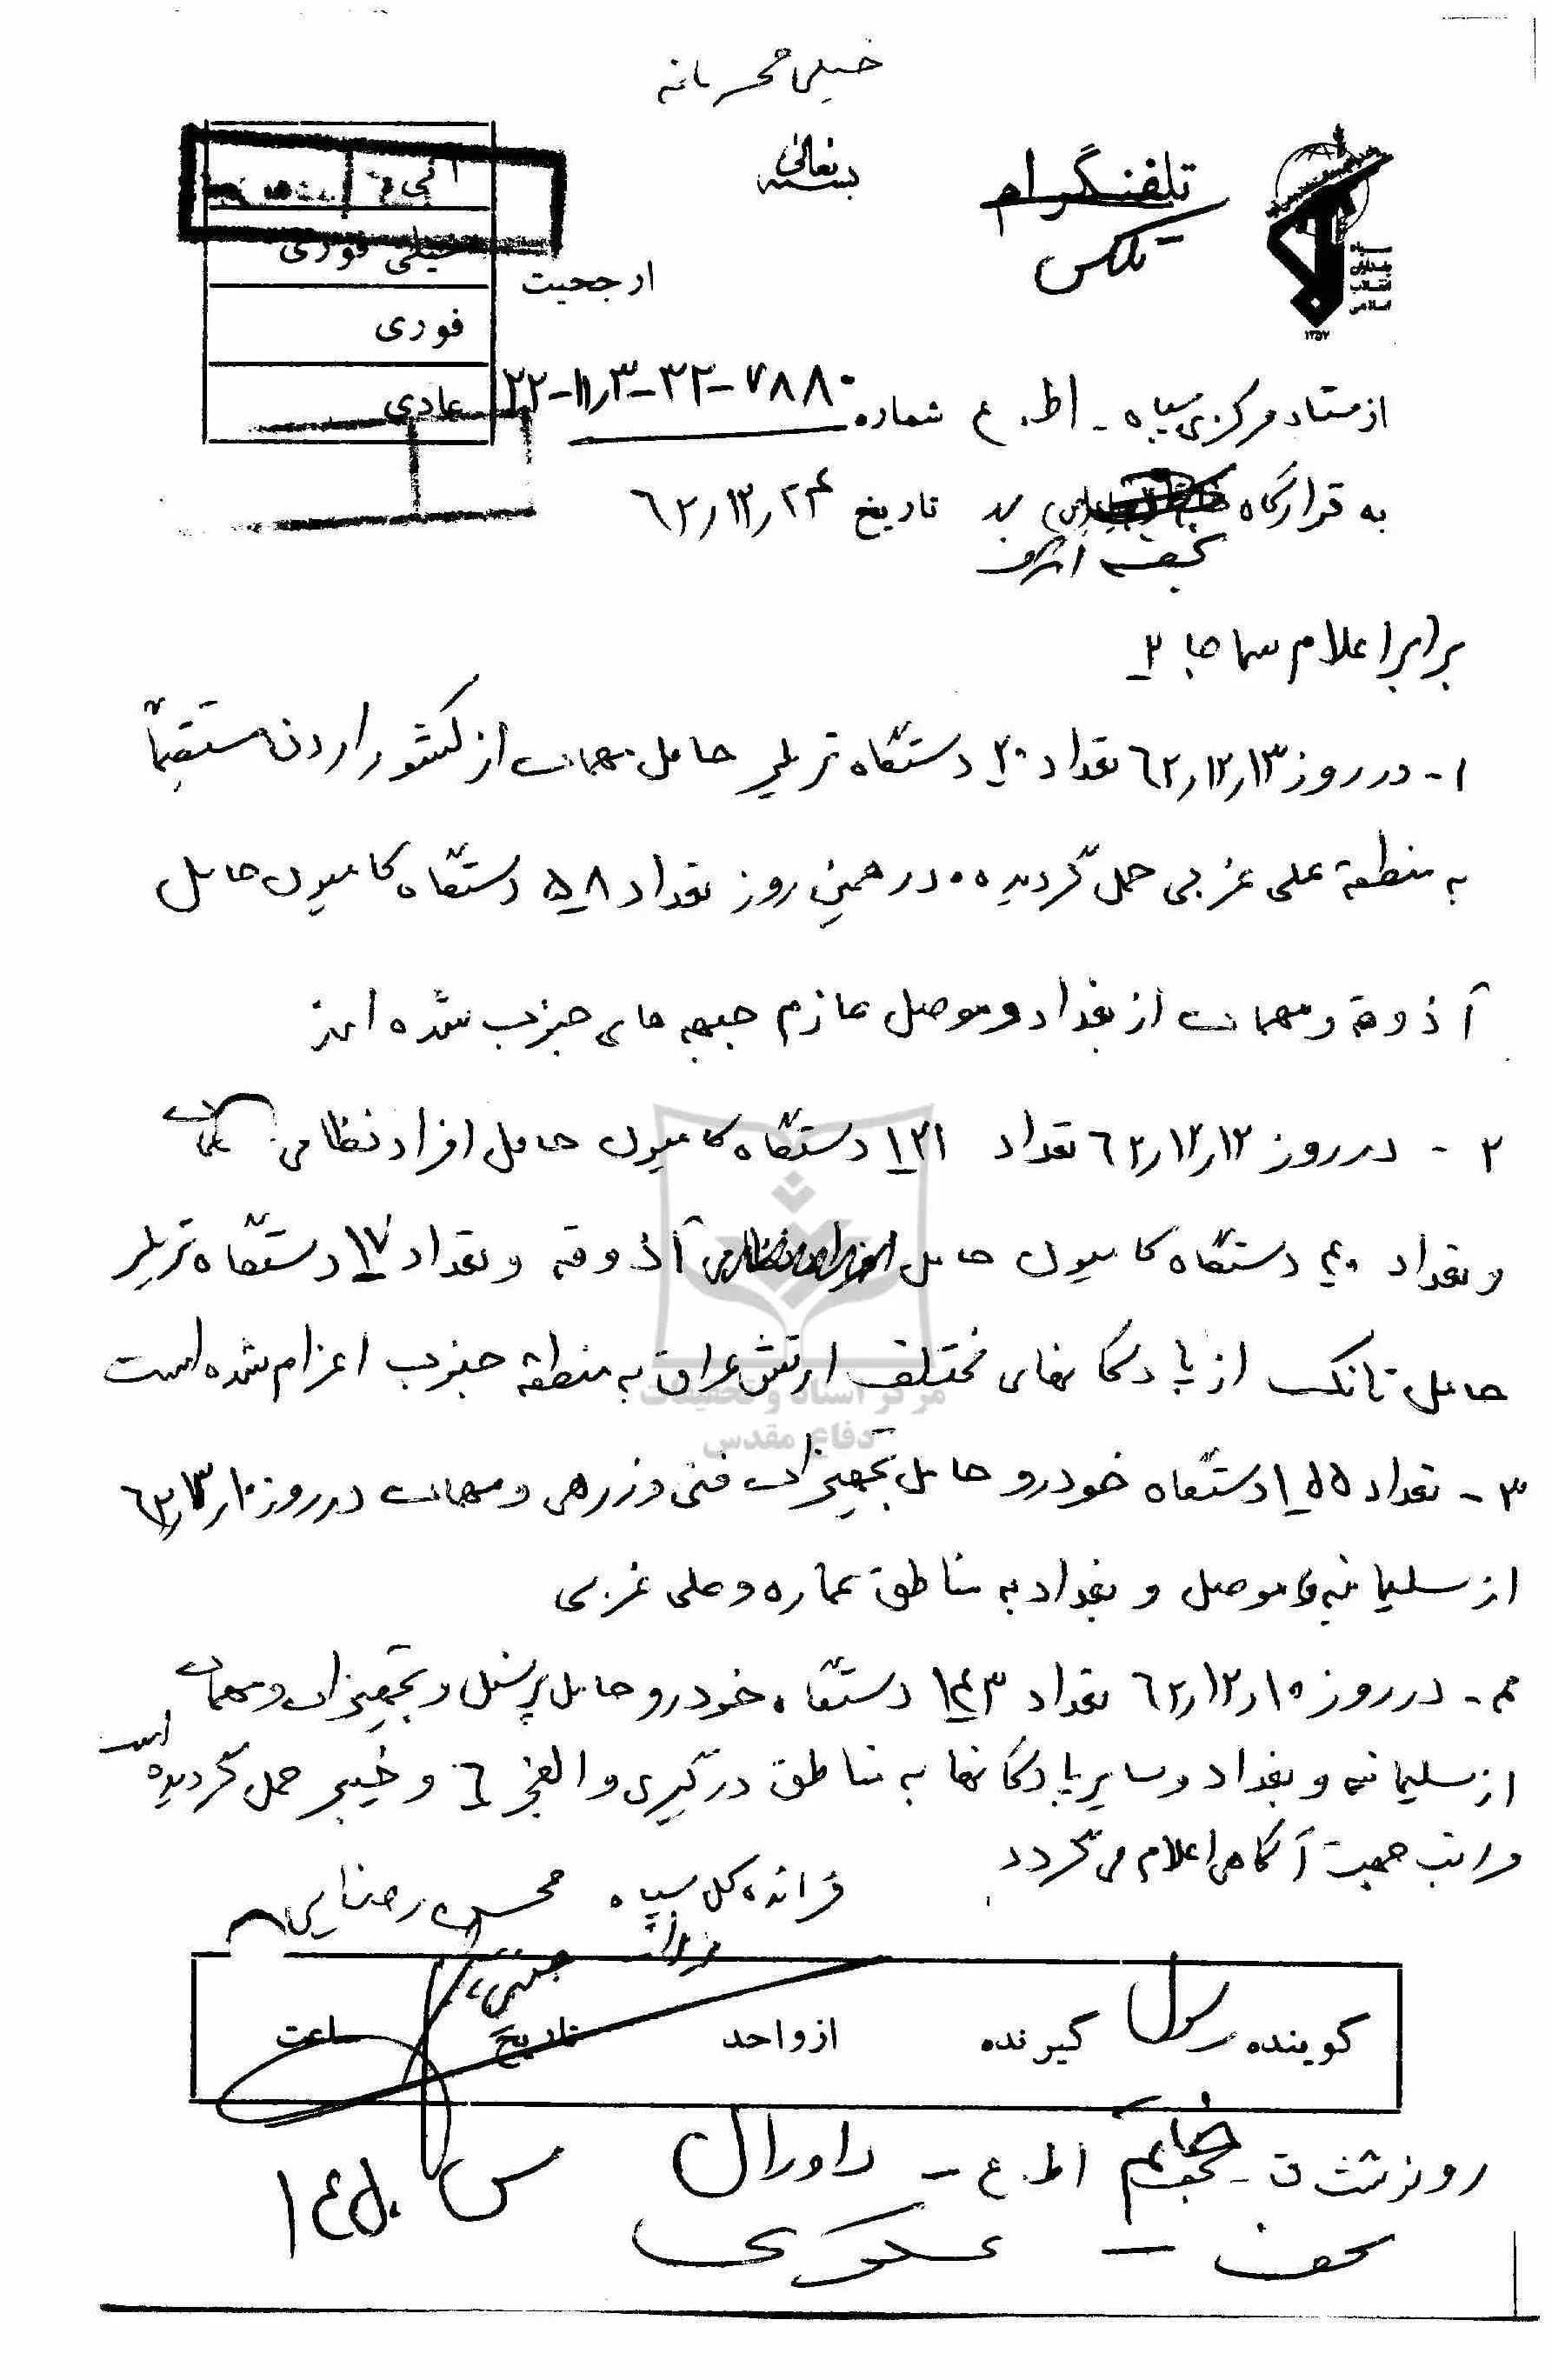 خیلی محرمانه
بسمه تعالی
تلفنگرام
تلکس
سپاه پاسداران انقلاب اسلامی
۱۳۵۷
آنی
خیلی فوری
ارجحیت
فوری
عادی
از ستاد مرکزی سپاه - اط. ع شماره ۷۸۸۰-۳۲-۳ر۱۱-۲۲
به قرارگاه تاریخ ۲۴ر۱۲ر۶۲
نجف اشرف
برابر اعلام سماجا ۲
۱- در روز ۱۳ر۱۲ر۶۲ تعداد ۲۰ دستگاه تریلر حامل مهمات از کشور اردن مستقیماً
به منطقه علی غربی حمل گردیده ۰ در همین روز تعداد ۵۸ دستگاه کامیون حامل
آذوقه و مهمات از بغداد و موصل عازم جبهه های جنوب شده اند
۲ - در روز ۱۲ر۱۲ر۶۲ تعداد ۱۲۱ دستگاه کامیون حامل افراد نظامی
و تعداد ۴۰ دستگاه کامیون حامل آذوقه و تعداد ۱۷ دستگاه تریلر
حامل تانک از پادگانهای مختلف ارتش عراق به منطقه جنوب اعزام شده است
مرکز اسناد و تحقیقات
دفاع مقدس
۳- تعداد ۱۵۵ دستگاه خودرو حامل تجهیزات فنی و زرهی و مهمات در روز ۱۰ر۱۲ر۶۲
از سلیمانیه و موصل و بغداد به مناطق عماره و علی غربی
۴- در روز ۱۰ر۱۲ر۶۲ تعداد ۱۴۳ دستگاه خودرو حامل پرسنل و تجهیزات و مهمات
از سلیمانیه و بغداد و سایر پادگانها به مناطق درگیری والفجر ۶ و خیبر حمل گردیده است
مراتب جهت آگاهی اعلام می گردد
فرمانده کل سپاه محسن رضایی
گوینده رسول گیرنده از واحد تاریخ ساعت
رونوشت ق - خاتم اط. ع - س ۱۴۵۰
نجف - عسکری